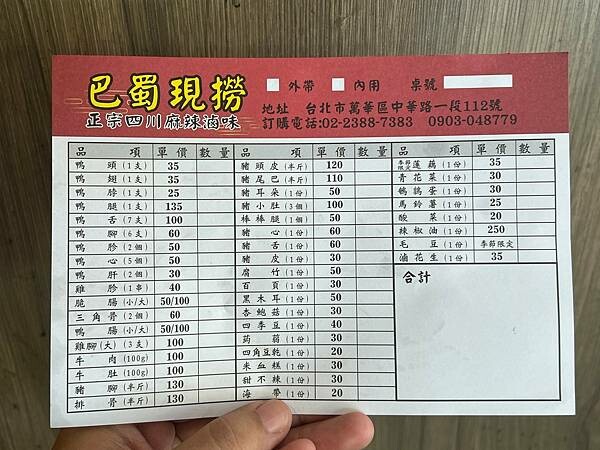 巴蜀現撈
正宗四川麻辣滷味
外帶 內用 桌號
地址 台北市萬華區中華路一段112號
訂購電話:02-2388-7383 0903-048779
品項 單價 數量
鴨頭(1支) 35
鴨翅(1支) 35
鴨脖(1支) 25
鴨腿(1支) 135
鴨舌(7支) 100
鴨腳(6支) 60
鴨胗(2個) 50
鴨心(5個) 50
鴨肝(2個) 30
雞胗(1串) 40
脆腸(小/大) 50/100
三角骨(2個) 60
鴨腸(小/大) 50/100
雞腳(大)(3支) 100
牛肉(100g) 100
牛肚(100g) 100
豬腳(半斤) 130
排骨(半斤) 130
品項 單價 數量
豬頭皮(半斤) 120
豬尾巴(半斤) 110
豬耳朵(1份) 50
豬小肚(3個) 100
棒棒腿(1個) 50
豬心(1份) 60
豬舌(1份) 60
豬皮(1份) 30
腐竹(1份) 50
百頁(1份) 30
黑木耳(1份) 50
杏鮑菇(1份) 30
四季豆(1份) 40
蒟蒻(1份) 30
四角豆乾(1份) 20
米血糕(1份) 30
甜不辣(1份) 30
海帶(1份) 20
品項 單價 數量
季節限定 蓮藕(1份) 35
青花菜(1份) 30
鵪鶉蛋(1份) 30
馬鈴薯(1份) 25
酸菜(1份) 20
辣椒油(1份) 250
毛豆(1份) 季節限定
滷花生(1份) 35
合計